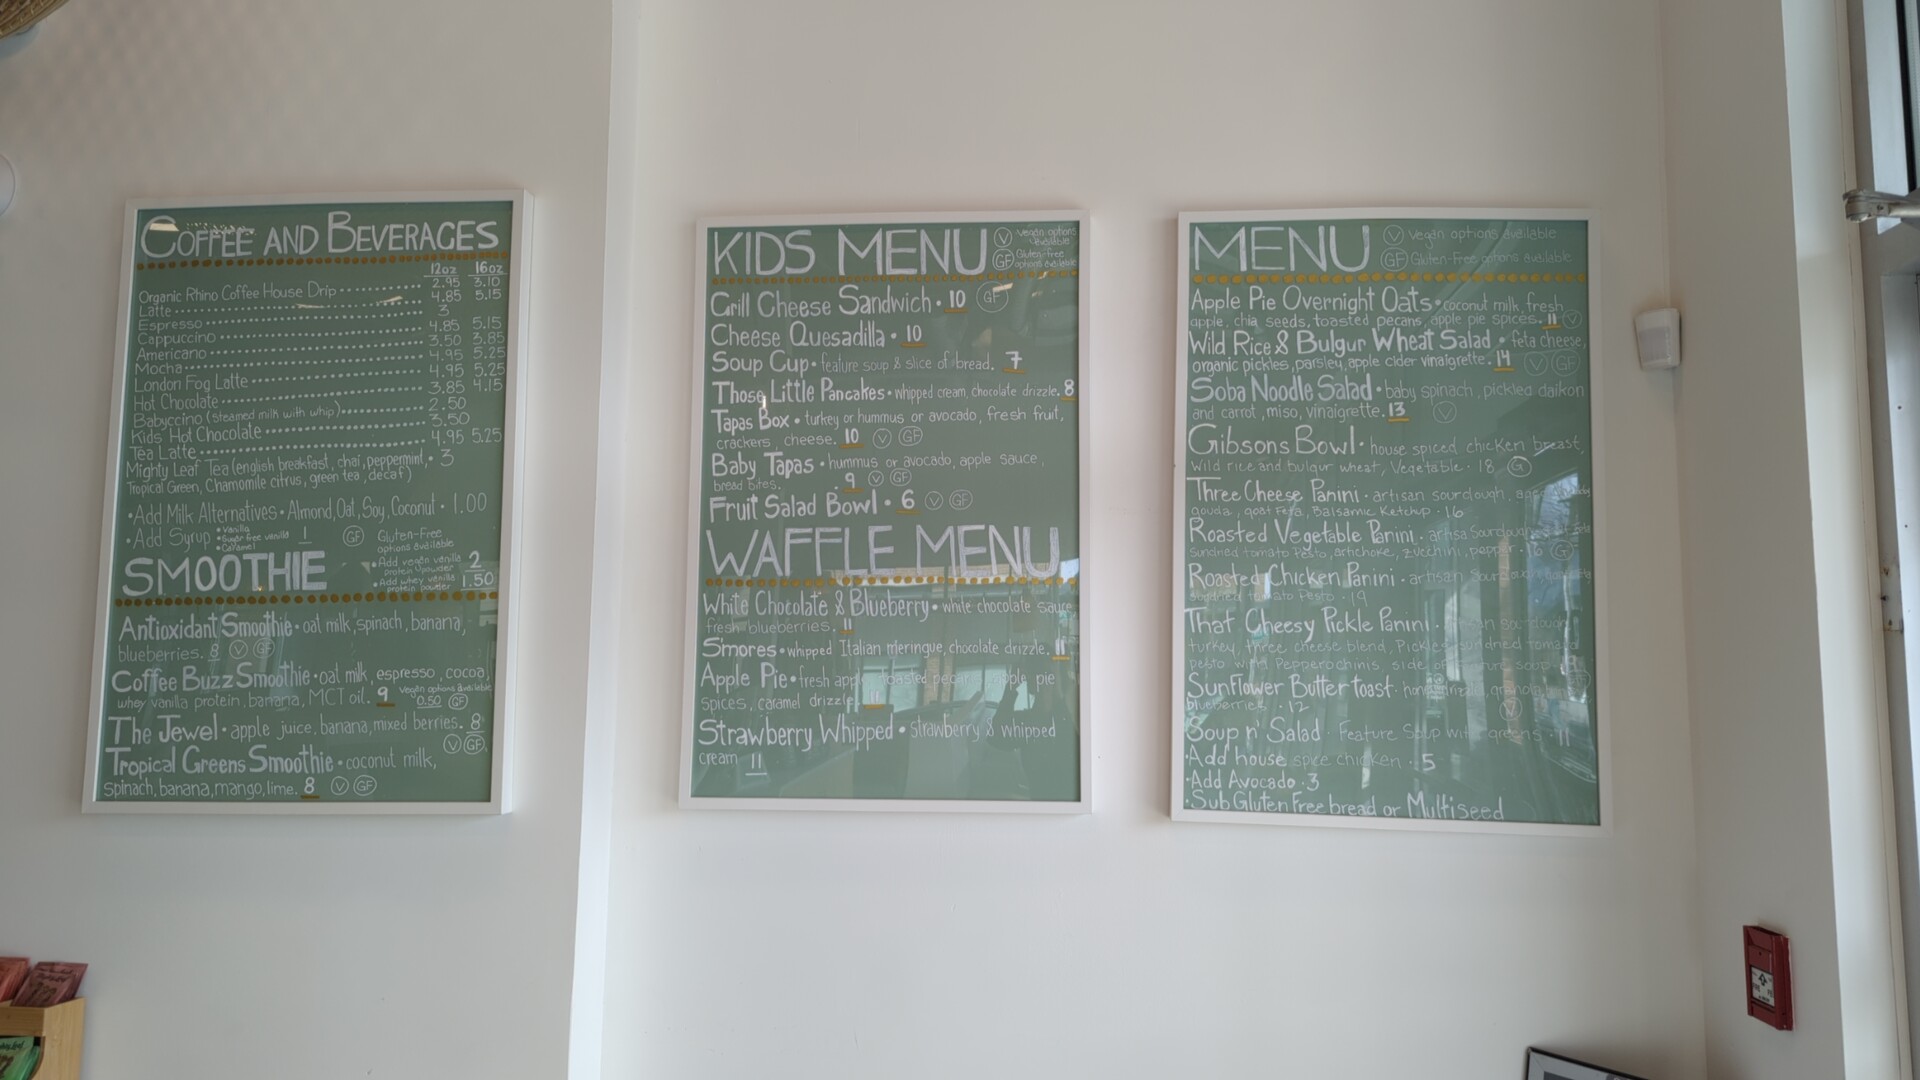 COFFEE AND BEVERAGES
12oz 16oz
Organic Rhino Coffee House Drip 2.95 3.10
Latte 4.85 5.15
Espresso 3
Cappuccino 4.85 5.15
Americano 3.50 3.85
Mocha 4.95 5.25
London Fog Latte 4.95 5.25
Hot Chocolate 3.85 4.15
Babyccino (Steamed milk with whip) 2.50
Kids' Hot Chocolate 3.50
Tea Latte 4.95 5.25
Mighty Leaf Tea (english breakfast, chai, peppermint, • 3
Tropical Green, Chamomile citrus, green tea, decaf)
•Add Milk Alternatives • Almond, Oat, Soy, Coconut • 1.00
•Add Syrup •Vanilla
•Sugar free vanilla 1
•Caramel
GF Gluten-Free
options available
SMOOTHIE
•Add vegan vanilla
protein powder 2
•Add whey vanilla
protein powder 1.50
Antioxidant Smoothie • oat milk, spinach, banana,
blueberries. 8 V GF
Coffee Buzz Smoothie • oat milk, espresso, cocoa,
whey vanilla protein, banana, MCT oil. 9 Vegan options available
0.50 GF
The Jewel • apple juice, banana, mixed berries. 8
V GF
Tropical Greens Smoothie • coconut milk,
spinach, banana, mango, lime. 8 V GF
KIDS MENU
V Vegan options
available
GF Gluten-Free
options available
Grill Cheese Sandwich • 10 GF
Cheese Quesadilla • 10
Soup Cup • feature soup & slice of bread. 7
Those Little Pancakes • whipped cream, chocolate drizzle. 8
Tapas Box • turkey or hummus or avocado, fresh fruit,
crackers, cheese. 10 V GF
Baby Tapas • hummus or avocado, apple sauce,
bread bites. • 9 V GF
Fruit Salad Bowl • 6 V GF
WAFFLE MENU
White Chocolate & Blueberry • white chocolate sauce,
fresh blueberries. 11
S'mores • whipped Italian meringue, chocolate drizzle. 11
Apple Pie • fresh apple, toasted pecan, apple pie
spices, caramel drizzle. 11
Strawberry Whipped • strawberry & whipped
cream 11
MENU
V Vegan options available
GF Gluten-Free options available
Apple Pie Overnight Oats • coconut milk, fresh
apple, chia seeds, toasted pecans, apple pie spices. 11 V
Wild Rice & Bulgur Wheat Salad • feta cheese,
organic pickles, parsley, apple cider vinaigrette. 14 V GF
Soba Noodle Salad • baby spinach, pickled daikon
and carrot, miso, vinaigrette. 13 V
Gibsons Bowl • house spiced chicken breast,
Wild rice and bulgur wheat, Vegetable • 18 G
Three Cheese Panini • artisan sourdough,
gouda, goat Feta, Balsamic Ketchup • 16
Roasted Vegetable Panini • artisa Sourdough
sundried tomato Pesto, artichoke, zucchini, pepper
Roasted Chicken Panini • artisan Sourdough
sundried tomato Pesto • 19
That Cheesy Pickle Panini • sourdough
turkey, three cheese blend, Pickles, sundried tomato
pesto with Pepperochinis, side of soup
SunFlower Butter toast • granola,
blueberries • 12
Soup n' Salad • Feature Soup with greens • 11
•Add house spice chicken • 5
•Add Avocado • 3
•Sub Gluten Free bread or Multiseed